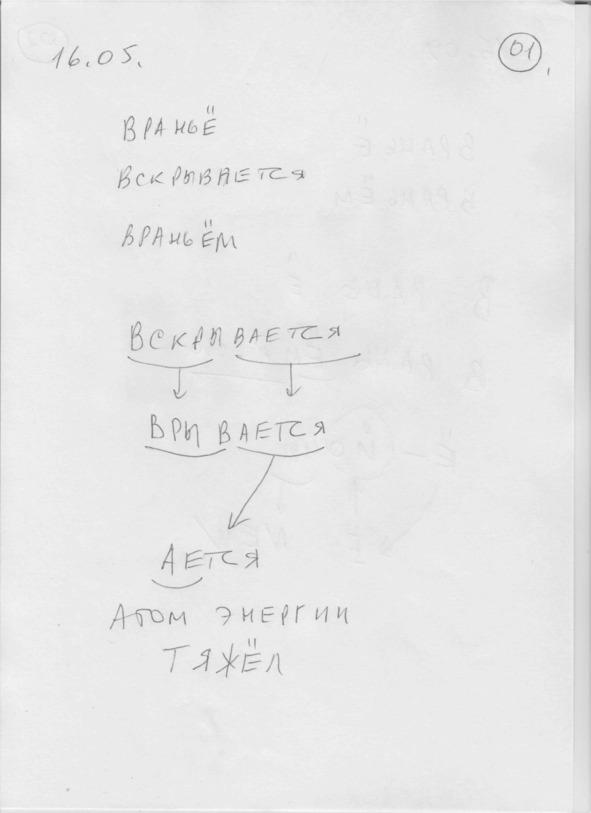 16.05. 01.
ВРАНЬЁ
ВСКРЫВАЕТСЯ
ВРАНЬЁМ
ВСКРЫВАЕТСЯ
ВРЫ ВАЕТСЯ
АЕТСЯ
АТОМ ЭНЕРГИИ
ТЯЖЁЛ